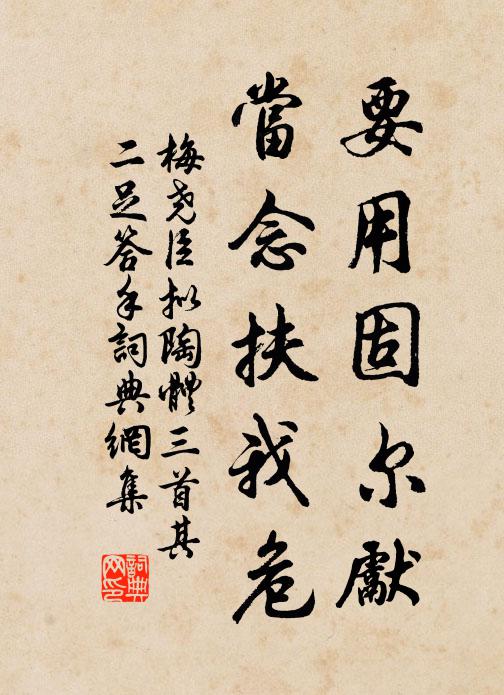 要用固尔獻
當念扶我危
梅堯臣擬陶體三首其
二足答手詞典網集
詞典网印